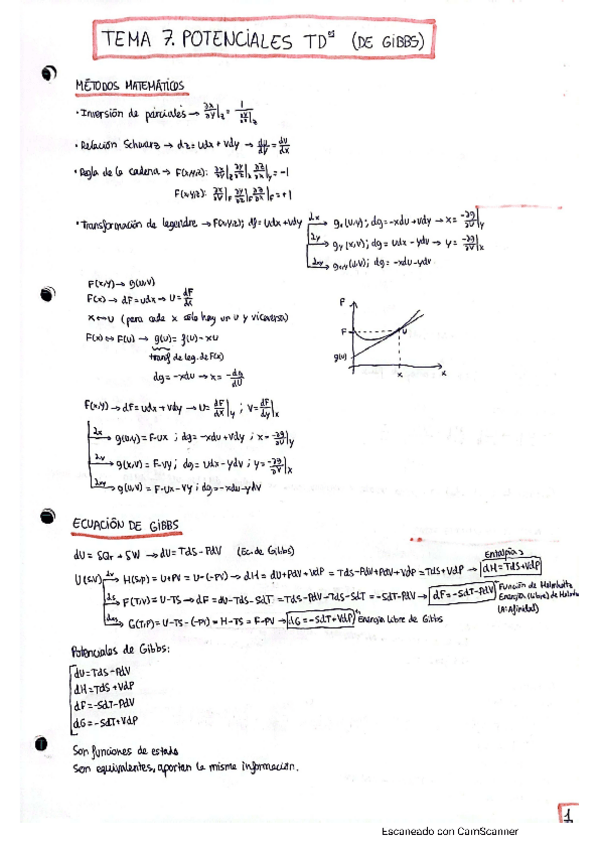 TEMA 7. POTENCIALES TDᵒˢ (DE GIBBS)
MÉTODOS MATEMÁTICOS
• Inversión de parciales → ∂x/∂y|z = 1/(∂y/∂x|z)
• Relación Schwarz → dz = udx + vdy → du/dy = dv/dx
• Regla de la cadena → F(x,y,z): ∂x/∂y|z ∂y/∂z|x ∂z/∂x|y = -1
F(x,y,z): ∂x/∂y|F ∂y/∂z|F ∂z/∂x|F = +1
• Transformación de legendre → F(x,y); df = udx + vdy
2x → gx(u,y); dg = -xdu + vdy → x = -∂g/∂u|y
2y → gy(x,v); dg = udx - ydv → y = -∂g/∂v|x
2xy → gxy(u,v); dg = -xdu - ydv
F(x,y) → g(u,v)
F(x) → dF = udx → u = dF/dx
x ↔ u (para cada x solo hay un u y viceversa)
F(x) ↔ F(u) → g(u) = f(u) - xu
transf de leg. de F(x)
dg = -xdu → x = -dg/du
F
F
g(u)
u
x
x
F(x,y) → dF = udx + vdy → u = dF/dx|y ; v = dF/dy|x
2x → g(u,y) = F - ux ; dg = -xdu + vdy ; x = -∂g/∂u|y
2y → g(x,v) = F - vy ; dg = udx - ydv ; y = -∂g/∂v|x
2xy → g(u,v) = F - ux - vy ; dg = -xdu - ydv
ECUACIÓN DE GIBBS
dU = δQr + δW → dU = TdS - PdV (Ec. de Gibbs)
Entalpía
U(S,V) 2v → H(S,P) = U + PV = U - (-PV) → dH = dU + PdV + VdP = TdS - PdV + PdV + VdP = TdS + VdP → dH = TdS + VdP
2s → F(T,V) = U - TS → dF = dU - TdS - SdT = TdS - PdV - TdS - SdT = -SdT - PdV → dF = -SdT - PdV
Función de Helmholtz
Energía (libre) de Helmho
(A: Afinidad)
G(T,P) = U - TS - (-PV) = H - TS = F + PV → dG = -SdT + VdP Energía Libre de Gibbs
Potenciales de Gibbs:
dU = TdS - PdV
dH = TdS + VdP
dF = -SdT - PdV
dG = -SdT + VdP
Son funciones de estado
Son equivalentes, aportan la misma información.
1
Escaneado con CamScanner